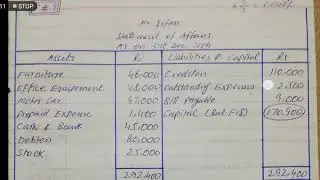 11 STOP # 9
Mr Irfan
Statement of Affairs
As on 31st Dec
Assets Rs Liabilities & Capital Rs
Furniture 46,000 Creditor 110,000
Office Equipment 48,000 Outstanding Expenses 2,500
Motor Car 47,000 Bill Payable 9,000
Prepaid Expense 1,400 Capital (Bal Fig) 170,900
Cash & Bank 45,000
Debtor 80,000
Stock 25,000
292,400 292,400